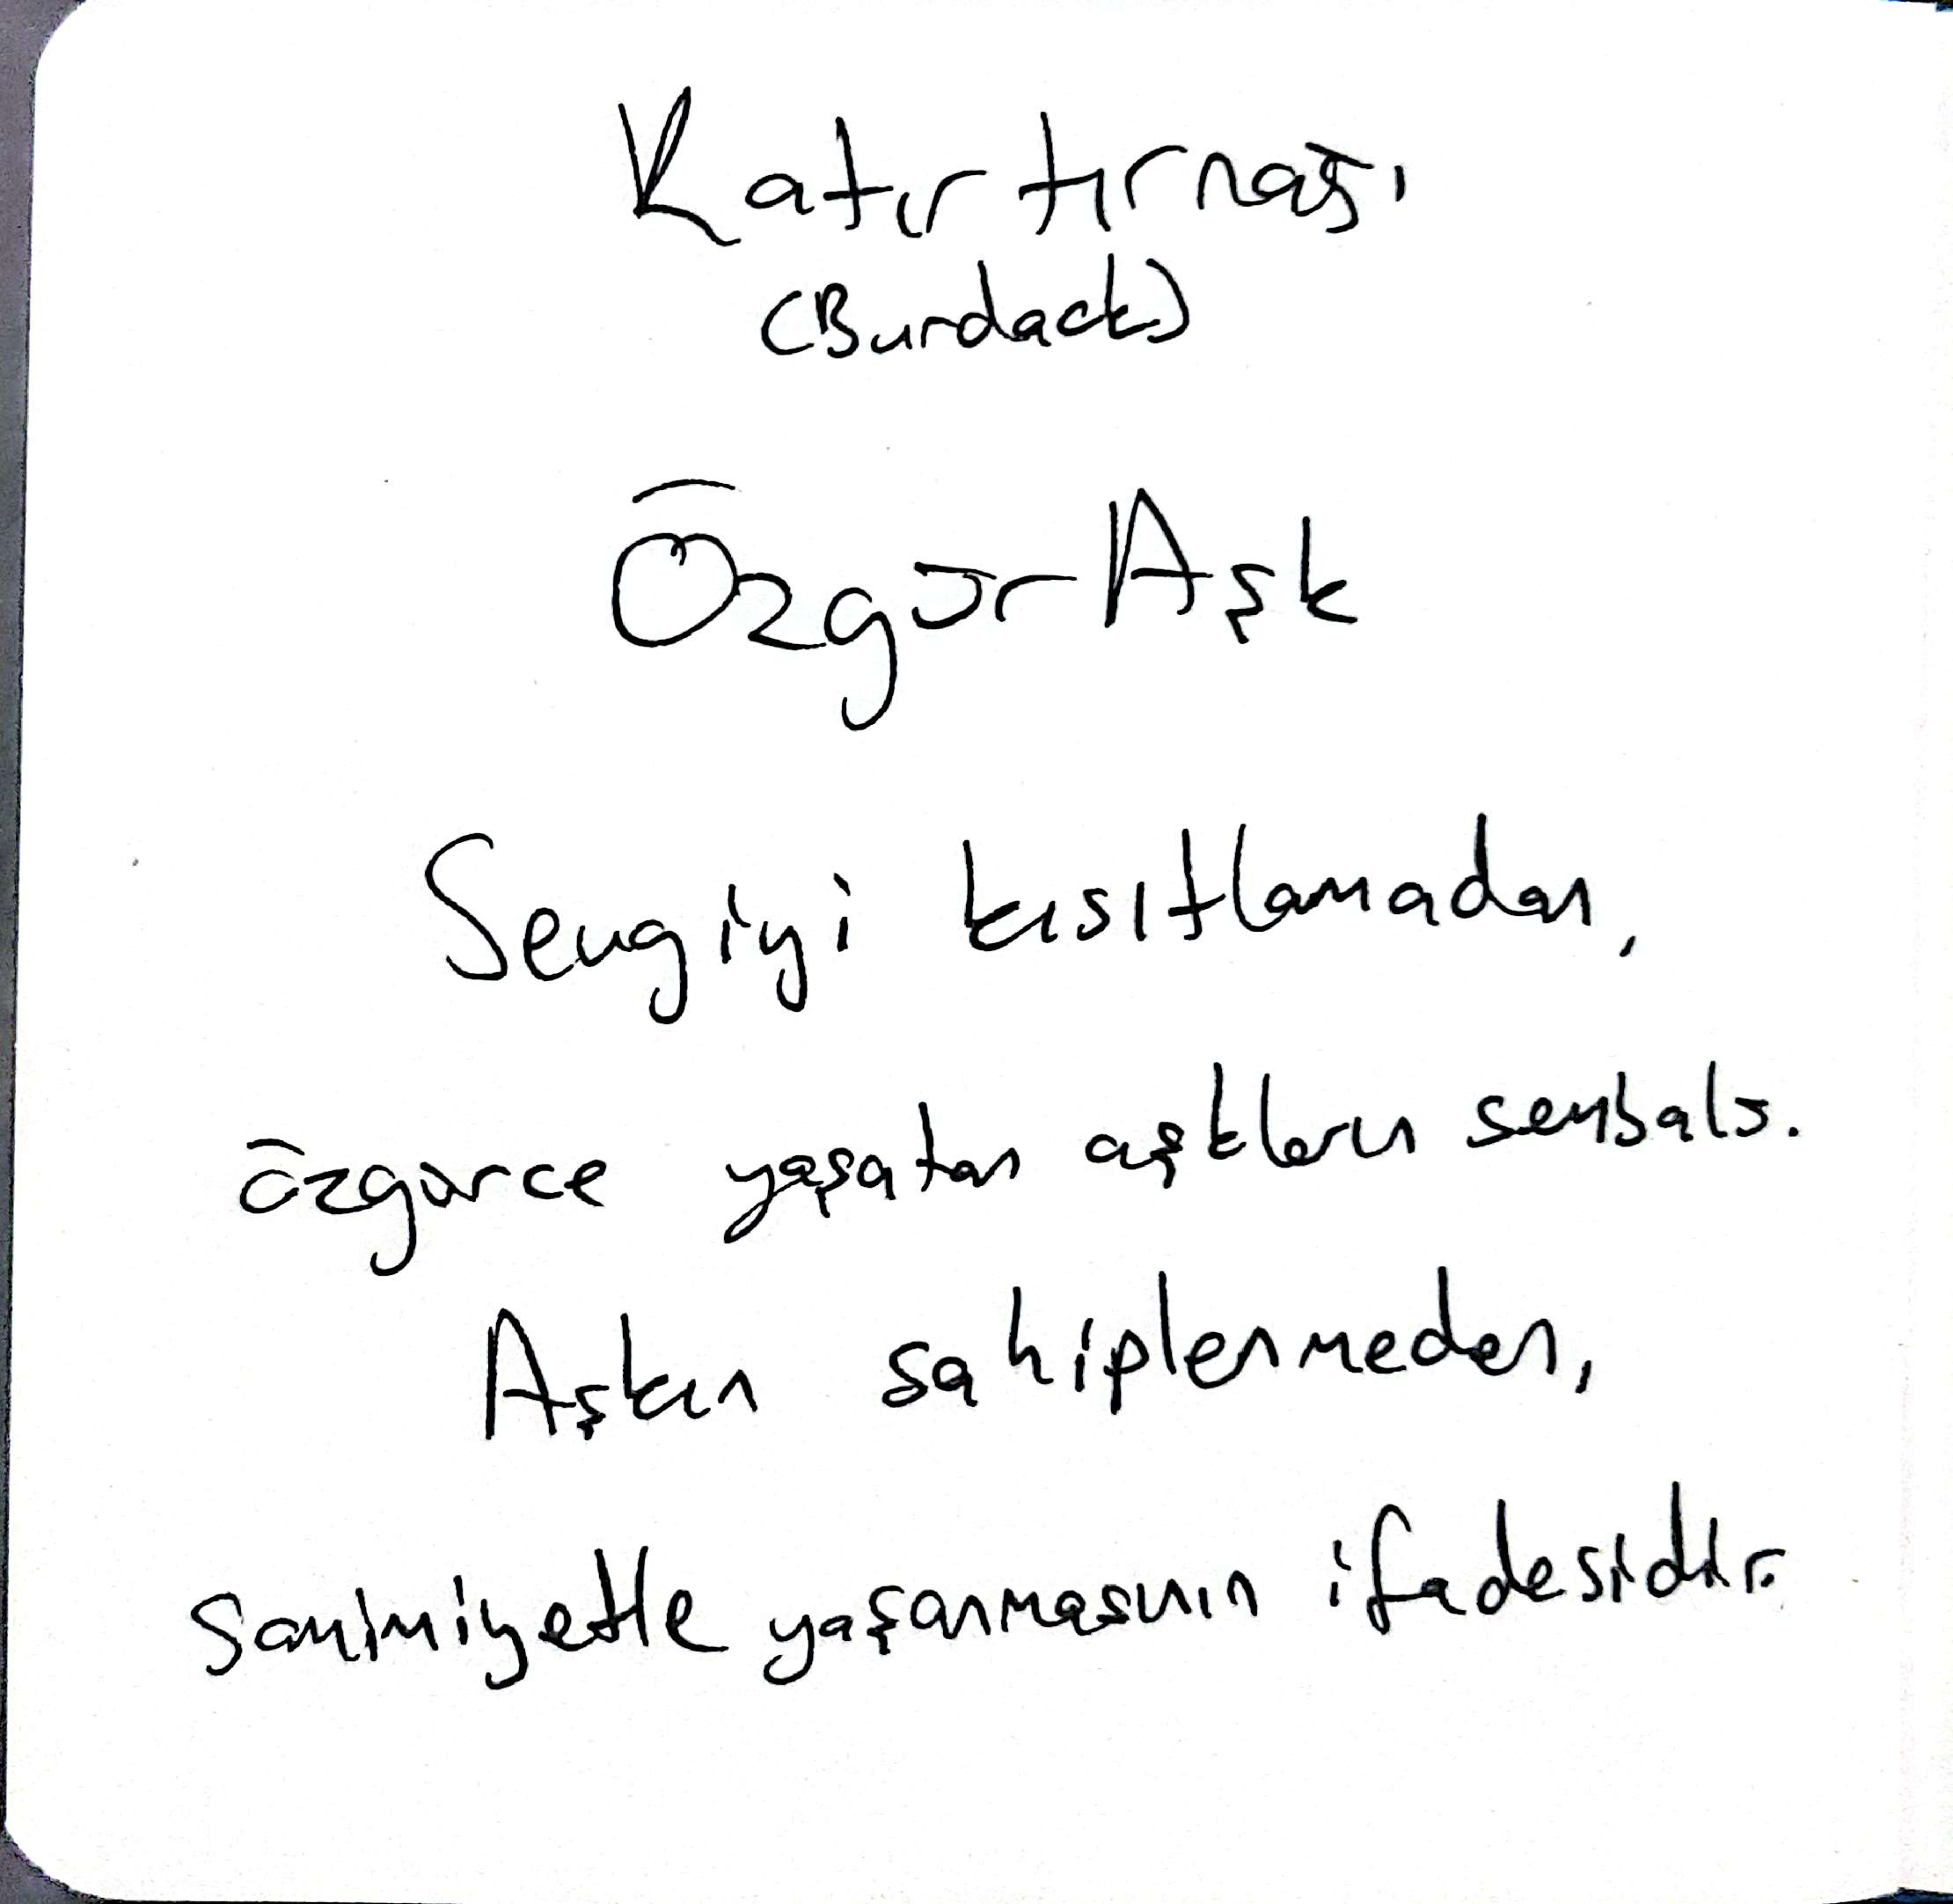 Katır tırnağı
(Burdack)
Özgür Aşk
Sevgiyi kısıtlamadan,
özgürce yaşatan aşkların sembolü.
Aşkın sahiplenmeden,
samimiyetle yaşanmasının ifadesidir.